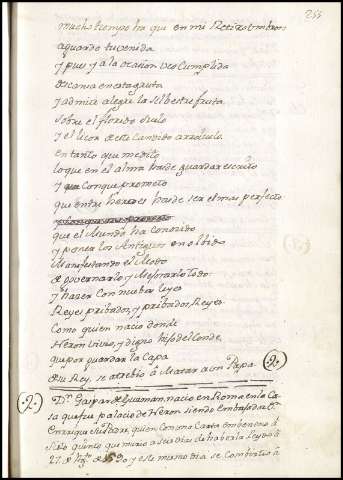 255
mucho tiempo ha que en mi Retiro umbroso
aguardo tu venida
y pues ya la ocasion veo Cumplida
descansa en esta gruta
y admira alegre la silbestre fruta
sobre el florido suelo
y el licor de este Candido arroiuelo
en tanto que medito
lo que en el alma has de guardar escrito
y con que prometo
que entre heroes has de ser el mas perfecto
que el Mundo ha Conozido
y poner los Antiguos en olbido
Manifestando el Modo
de governarlo y Mejorarlo todo
y hazer Con nuebas leyes
Reyes pribados, y pribados Reyes
Como quien nacio donde
Neron vivio, y digno hijo del Conde,
que por guardar la Capa
de su Rey, se atrebio à Matar a un Papa (2)
(2) Dn. Gaspar de Guzman, nacio en Roma en la Ca
sa que fue palacio de Neron siendo embajador Dn.
Enrique su Padre, quien Con una Carta enbeneno à
Sixto quinto que murio a seis dias de haberla leydo à
27. de Ag.to de 1590 y este mismo dia se